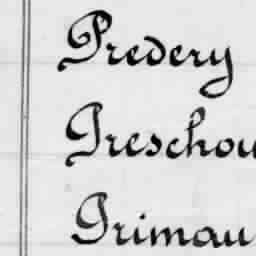 Predery
Greschou
Grimau